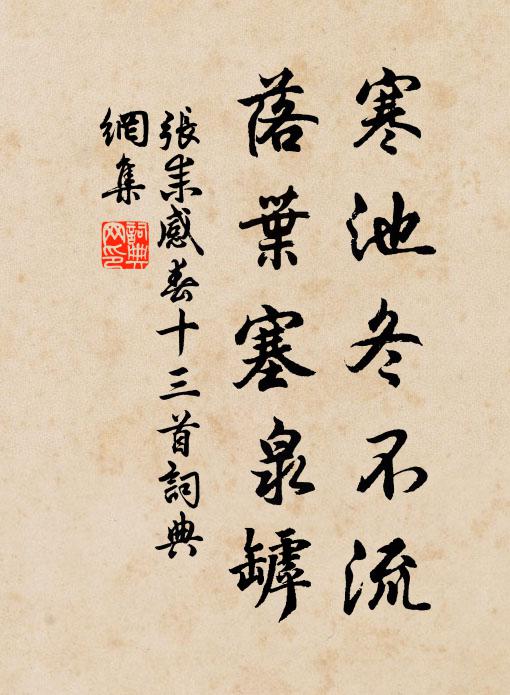 寒池冬不流
落葉塞泉罅
張耒感春十三首詞典
網集
詞典網印